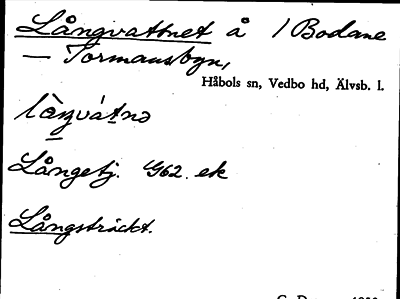 Långvattnet å / Bodane
— Tormansbyn,
Håbols sn, Vedbo hd, Älvsb. l.
Långetj. G62. ek
Långsträckt.